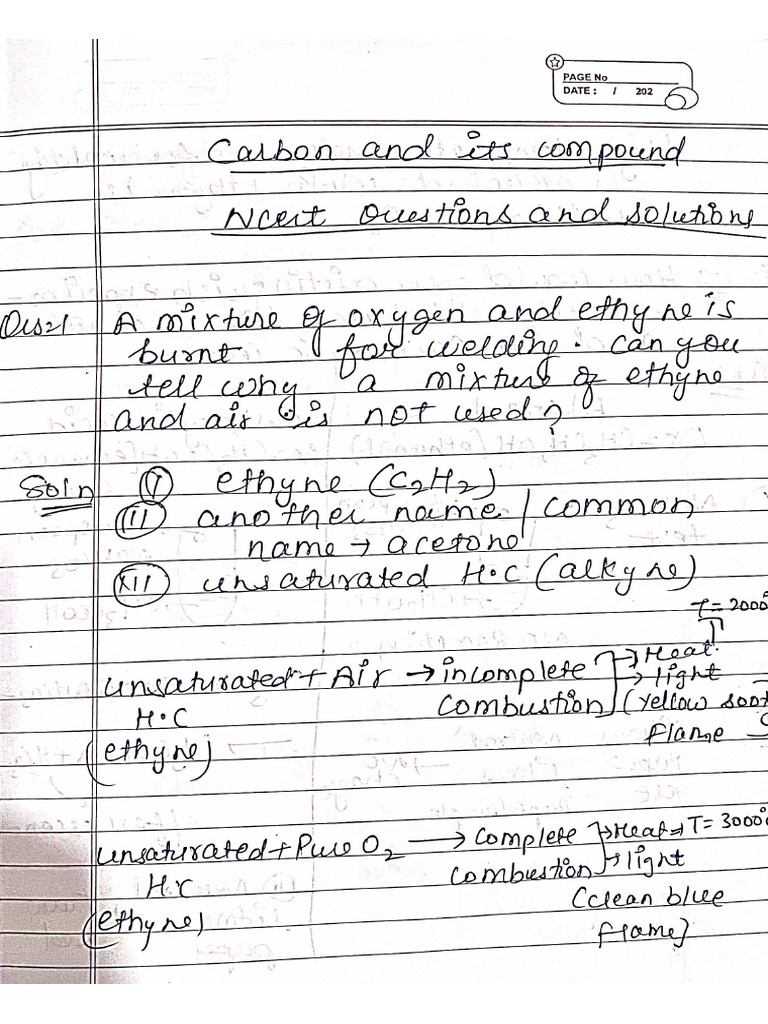 PAGE No
DATE : / 202
Carbon and its compound
Ncert Questions and solutions
Ques1 A mixture of oxygen and ethyne is
burnt for welding. can you
tell why a mixture of ethyne
and air is not used?
Soln (I) ethyne (C2H2)
(II) another name / common
name → acetone
(III) unsaturated H.C (alkyne)
T = 2000°
unsaturated + Air → incomplete → Heat
H.C combustion → light
(ethyne) (yellow soot
flame
unsaturated + Pure O2 → complete → Heat → T = 3000°
H.C combustion → light
(ethyne) (clean blue
flame)